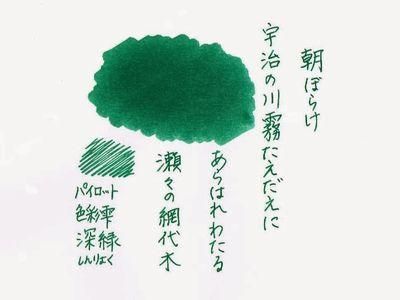 朝ぼらけ
宇治の川霧たえだえに
あらはれわたる
瀬々の網代木
パイロット
色彩雫
深緑
しんりょく